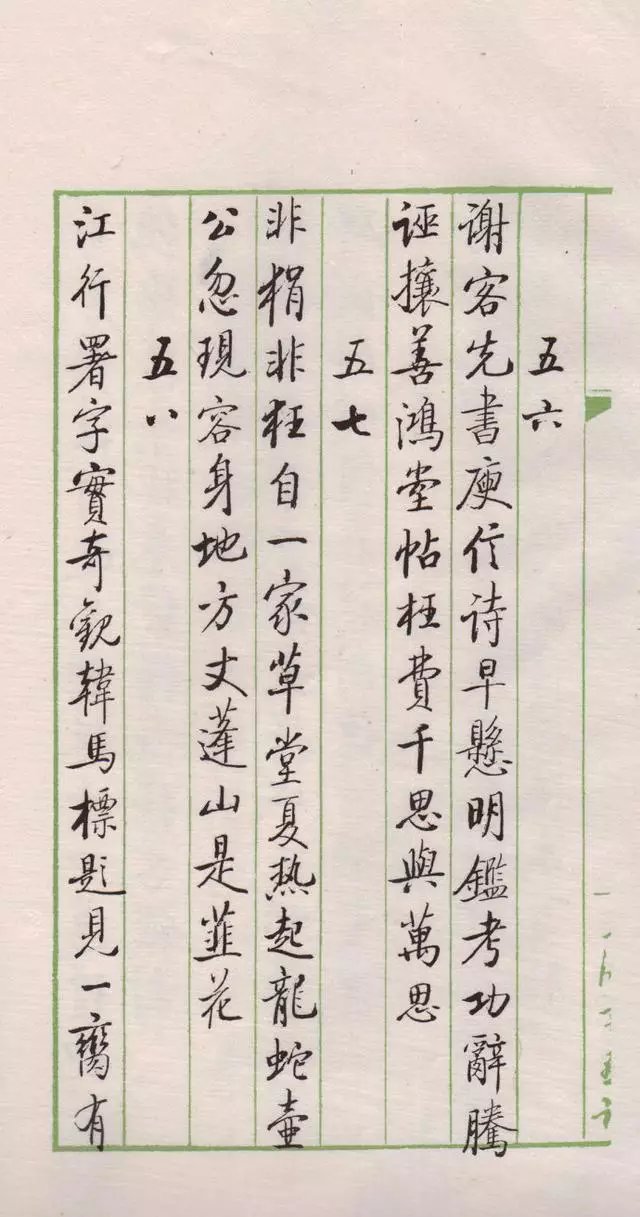 五六
谢客先書庾信诗早懸明鑑考功辭騰
诬攘善鴻堂帖枉費千思與萬思
五七
非狷非狂自一家草堂夏热起龍蛇壶
公忽現容身地方丈蓬山是韮花
五八
江行署字實奇觀韓馬標题見一臠有